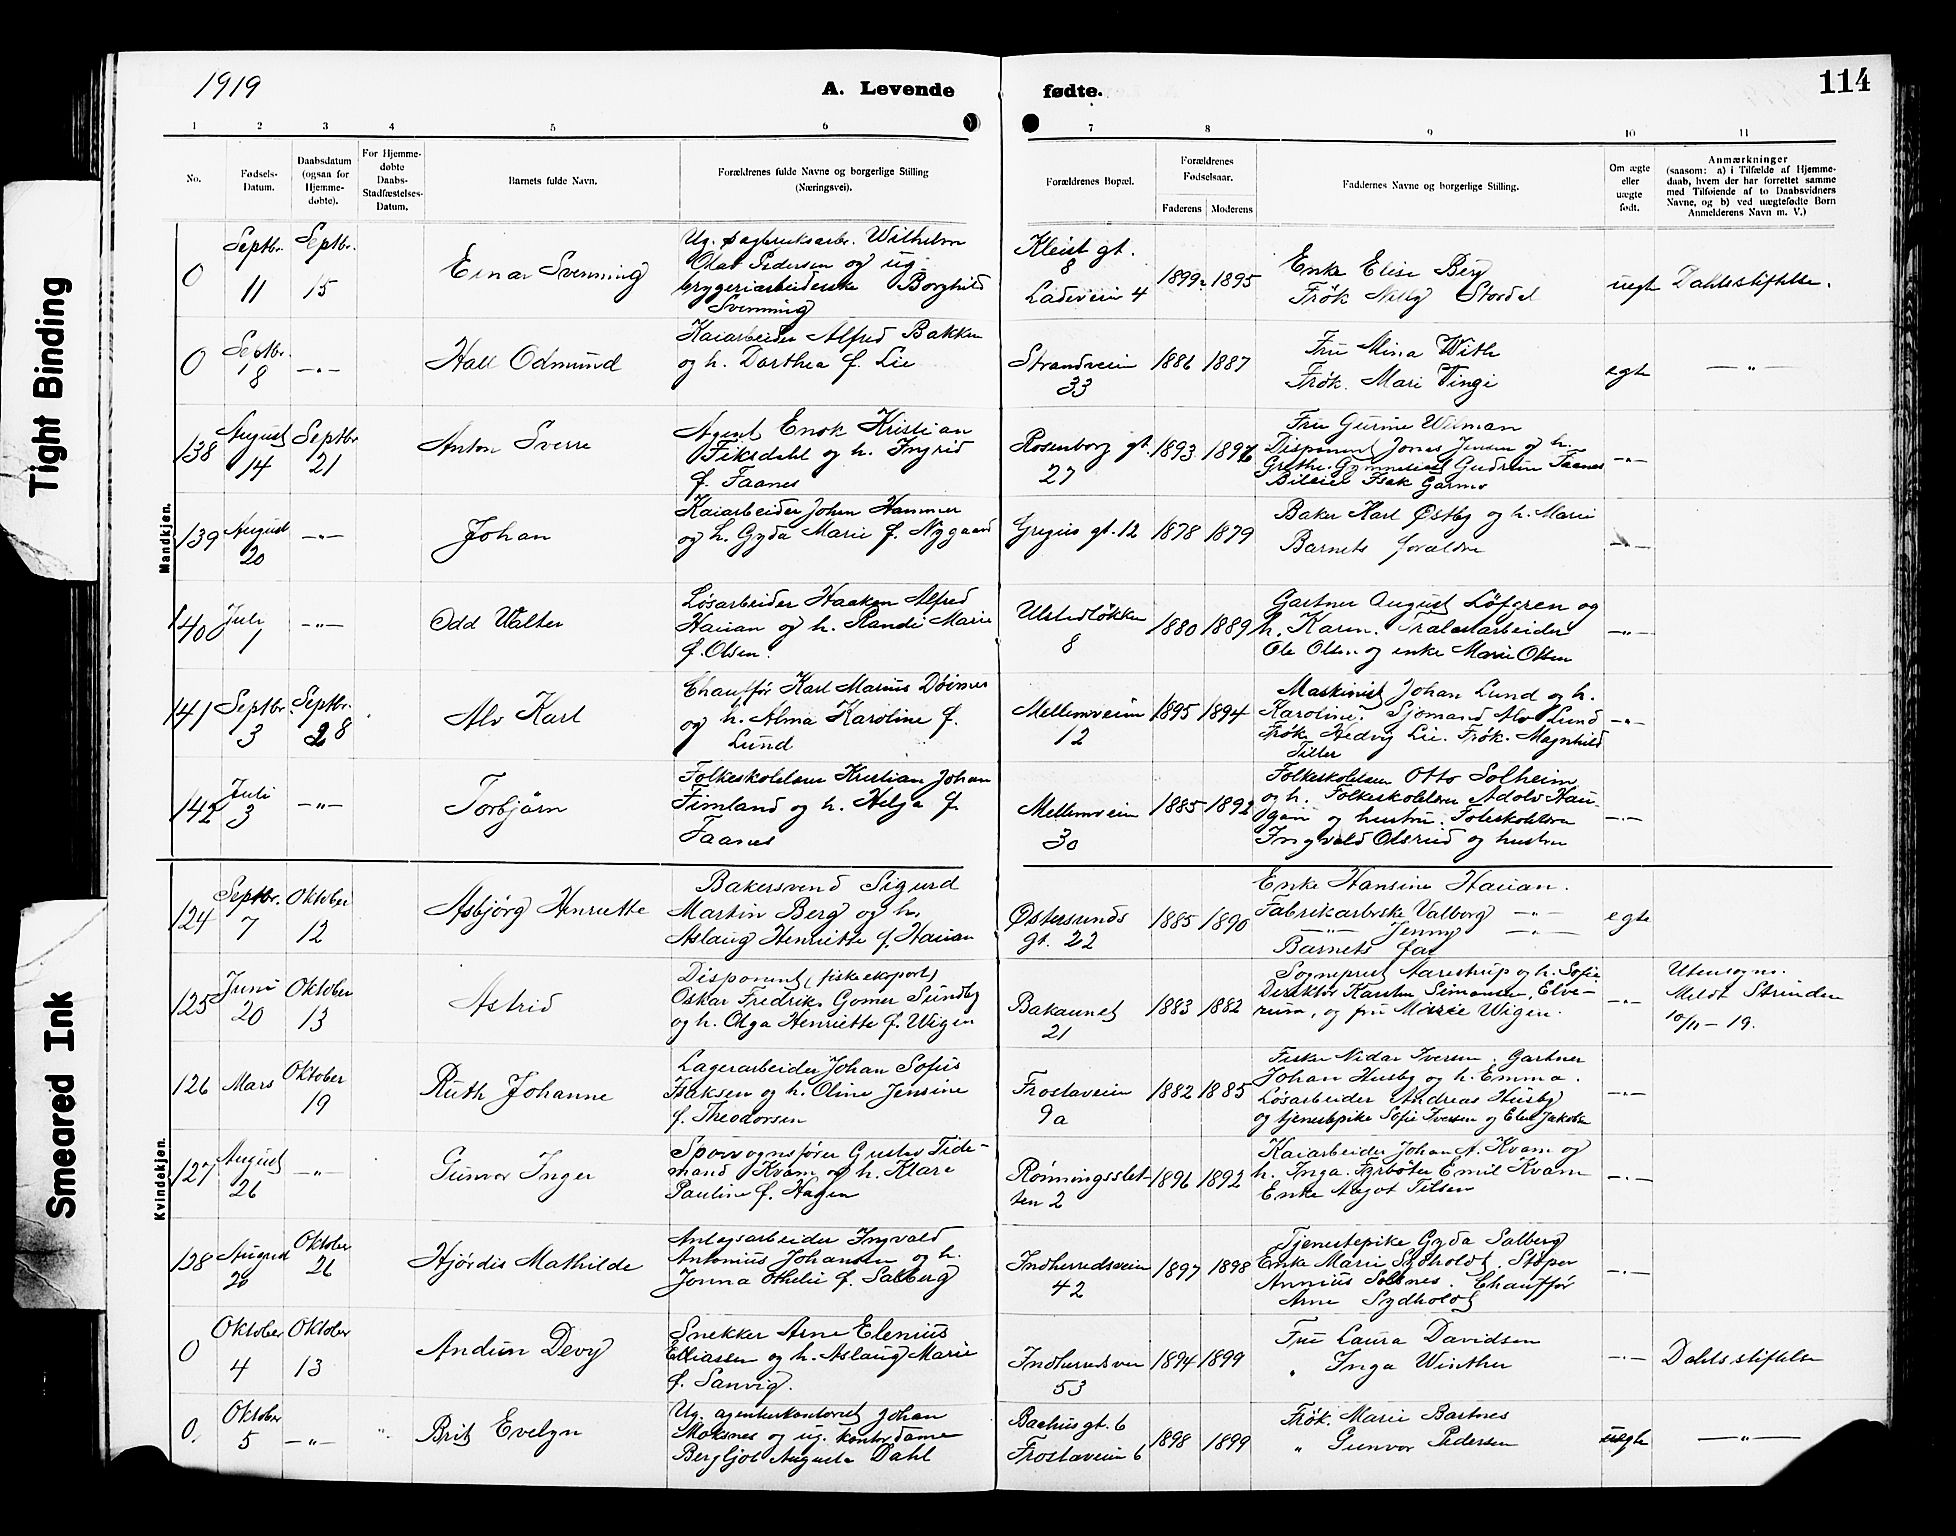 1919
A. Levende
fødte.
114
1
2
3
4
5
6
7
8
9
10
11
No.
Fødsels-
Datum.
Daabsdatum
(ogsaa for
Hjemme-
døbte).
For Hjemme-
døbte
Daabs-
Stadfæstelses-
Datum.
Barnets fulde Navn.
Forældrenes fulde Navne og borgerlige Stilling
(Næringsvei).
Forældrenes Bopæl.
Forældrenes
Fødselsaar.
Faderens
Moderens
Faddernes Navne og borgerlige Stilling.
Om ægte
eller
uægte
født.
Anmærkninger
(saasom: a) i Tilfælde af Hjemme-
daab, hvem der har forrettet samme
med Tilføiende af to Daabsvidners
Navne, og b) ved uægtefødte Børn
Anmelderens Navn m. V.)
Tight Binding
Smeared Ink
Mandkjøn.
Kvindekjøn.
0
Septbr.
11
Septbr.
15
Einar Svenning
Ug. sagbruksarb. Wilhelm
Olav Pedersen og ug.
bryggeriarbeiderske Borghild
Svenning
Kleist gt.
8
Ladeveien 4
1899
1895
Enke Elise Berg
Frøk. Nelly Stordal
uegte
Dahlsstiftelse.
0
Septbr.
18
—"—
Hall Odmund
Kaiarbeider Alfred Bakken
og h. Dorthea f. Lie
Strandveien
33
1886
1887
Fru Mina With
Frøk. Mari Tingi
egte
—"—
138
August
14
Septbr
21
Anton Sverre
Agent Enok Kristian
Fiksdahl og h. Ingrid
f. Faanes
Rosenborg gt.
27
1893
1896
Fru Gurine Wilman
Disponent Jonas Jensen og h.
Grethe. Gymnasiast Gudrun Faanes
Garmo
—"—
139
August
20
—"—
Johan
Kaiarbeider Johan Hammer
og h. Gyda Marie f. Nygaard
Gregus gt. 12
1878
1879
Baker Karl Østby og h. Marie
Barnets forældre
—"—
140
Juli
1
—"—
Odd Walter
Løsarbeider Haakon Alfred
Hauan og h. Randi Marie
f. Olsen.
Ulstadløkken
8
1880
1889
Gartner August Löfgren og
h. Karen.
Ole Olsen og enke Marie Olsen
—"—
141
Septbr.
3
Septbr.
28
Alv Karl
Chauffør Karl Marius Döimer
og h. Alma Karoline f.
Lund
Mellemveien
12
1895
1894
Maskinist Johan Lund og h.
Karoline. Sjømand Alv Lund
Frøk. Hedvig Lie. Frøk. Magnhild
Tiller
—"—
142
Juli
3
—"—
Torbjørn
Folkeskolelærer Kristian Johan
Fimland og h. Helga f.
Faanes
Mellemveien
30
1885
1892
Folkeskolelærer Otto Solheim
og h. Folkeskolelærer Adolv Hau-
gan og hustru. Folkeskolelærer
Ingvald Olsrud og hustru
—"—
124
Septbr.
7
Oktober
12
Asbjørg Henriette
Bakersvend Sigurd
Martin Berg og h.
Aslaug Henriette f. Hauan
Østersunds
gt. 22
1885
1890
Enke Hansine Hauan.
Fabrikarbske Valborg —"—
—"— Jenny —"—
Barnets far
egte
125
Juni
20
Oktober
13
Astrid
Disponent (fiskeeksport)
Oskar Fredrik Gomer Sundby
og h. Olga Henriette f. Wigen
Bakaunet
21
1883
1882
Sogneprest Aarestrup og h. Sofie
Direktør Karsten Simonsen, Elve-
rum, og fru Marie Wigen.
—"—
Utensogns.
Meldt Strinden
10/11 – 19.
126
Mars
Oktober
19
Ruth Johanne
Lagerarbeider Johan Sofus
Isaksen og h. Oline Jensine
f. Theodorsen
Frostaveien
9a
1882
1885
Fisker Nidar Iversen. Gartner
Johan Husby og h. Emma.
Løsarbeider Andreas Husby
og tjenestepike Sofie Iversen og Elen Jakobsen
—"—
127
August
26
—"—
Gunvor Inger
Sporvognsfører Gustav Tide-
mand Kvam og h. Klara
Pauline f. Hagen
Rønningsslet-
ten 2
1896
1892
Kaiarbeider Johan A. Kvam og
h. Inga. Fyrbøter Emil Kvam
Enke Magot Tilsen
—"—
128
August
20
Oktober
26
Hjørdis Mathilde
Anlegsarbeider Ingvald
Antonius Johansen og h.
Jonna Othelie f. Salberg
Indherredsveien
42
1897
1898
Tjenestepike Gyda Salberg
Enke Marie Sydholdt. Støper
Annius Soltnes. Chauffør
Arne Sydholdt
—"—
0
Oktober
4
Oktober
13
Andun Devy
Snekker Arne Elenius
Elliassen og h. Aslaug Marie
f. Sanvig.
Indherredsvei
53
1894
1899
Fru Laura Davidsen
" Inga Winther
—"—
Dahlsstiftelse
0.
Oktober
5
—"—
Brit Evelyn
Ug. agenturkontorist Johan
Moksnes og ug. kontordame
Bergljot Augusta Dahl
Bachus gt. 6
Frostaveien 6
1898
1899
Frøk. Marie Bartnes
" Gunvor Pedersen
uegte
—"—